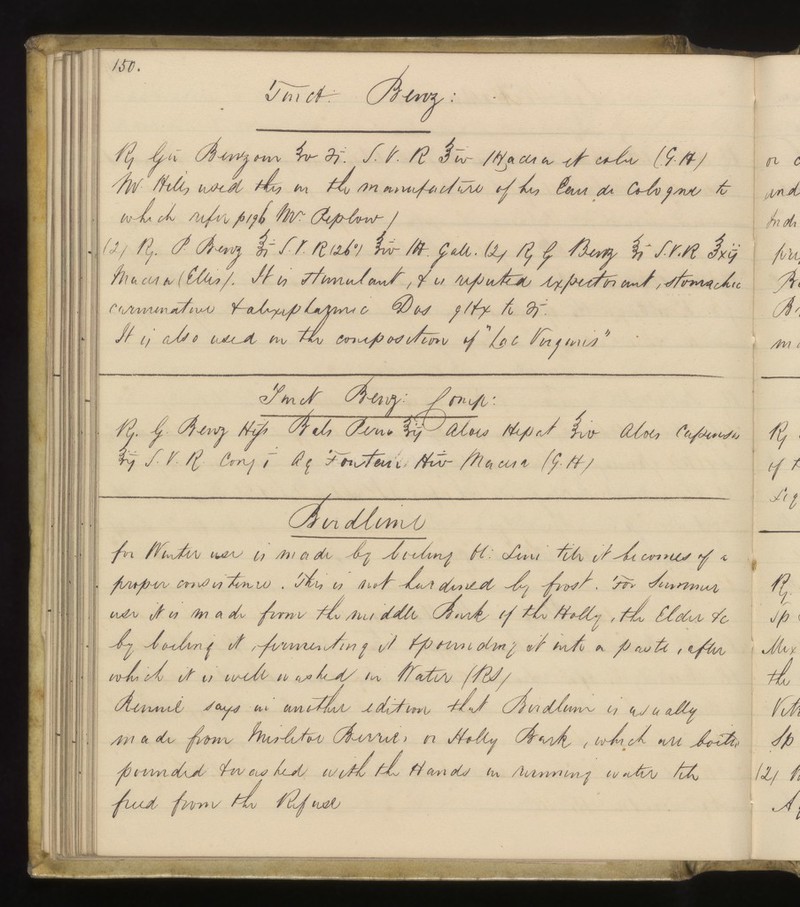 150.
Tinct: Benz:
℞ Gū Benzoin ℥v ʒj. S.V.R ℥iv Macera et cola (G.H)
Mr Hills used this in the manufacture of his Eau de Cologne to
which refer p196 Mr Peplow)
(2) ℞. P. Benz ℥j S.V.R (26°) ℥iv Gall. (2) ℞ G Benz ℥j S.V.R ℥xij
Macera (Ellis). It is stimulant, & is reputed expectorant, stomachic
carminative & alexipharmic Dos to ʒj.
It is also used in the composition of "Lac Virginis"
Tinct Benz: Comp:
℞. G Benz Bals Peru ℥ij Aloes Hepat ℥iv Aloes Capensis
S.V.R Conj i Aq Fontan Macera (G.H)
Birdlime
for Winter use is made by boiling Ol: Lini till it becomes of a
proper consistence. This is not hardened by frost. For Summer
use it is made from the middle Bark of the Holly, the Elder &c
by boiling it, fermenting it & pounding it into a paste, after
which it is well washed in Water (RS)
Rennie says in another edition that Birdlime is usually
made from Misletoe Berries or Holly Bark, which are boiled
pounded & washed with the Hands in running water till
freed from the Refuse
or
and
℞
of
℞.
Sp
Mix
the
Sp
(2)